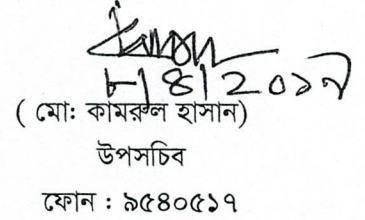 ৮/৪/২০১৭
( মোঃ কামরুল হাসান)
উপসচিব
ফোন : ৯৫৪০৫১৭